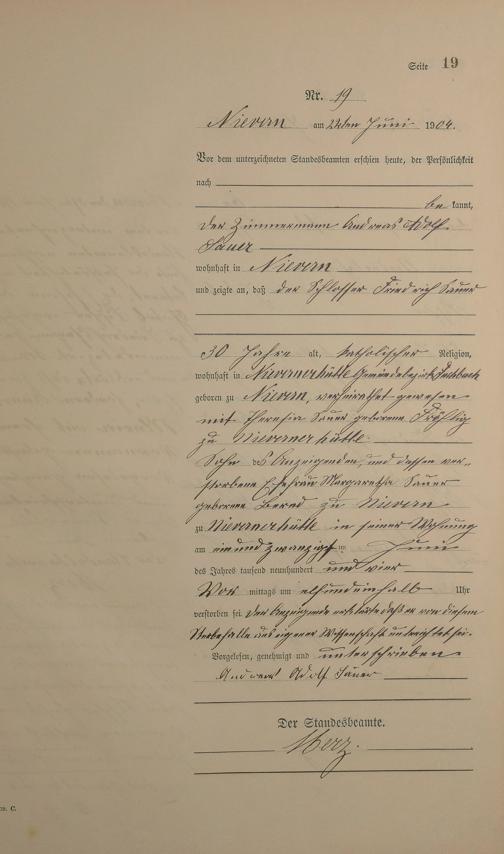 Seite 19
Nr. 19
Nievern am 22ten Juni 1904.
Vor dem unterzeichneten Standesbeamten erschien heute, der Persönlichkeit
nach
be kannt,
der Zimmermann Andreas Adolf
Sauer
wohnhaft in Nievern
und zeigte an, daß der Schlosser Friedrich Sauer
30 Jahre alt, katholischer Religion,
wohnhaft in Nievernerhütte Gemeindebezirk Fachbach
geboren zu Nievern, verheirathet gewesen
mit Theresia Sauer geborene Fröhlig
zu Nievernerhütte
Sohn des Anzeigenden, und dessen ver-
storbene Ehefrau Margaretha Sauer
geborene zu Nievern
zu Nievernerhütte in seiner Wohnung
am einundzwanzigsten Juni
des Jahres tausend neunhundert und vier
Vor mittags um elfundeinhalb Uhr
verstorben sei. Der Anzeigende erklärte daß er von diesem
Sterbefalle aus eigener Wissenschaft unterrichtet sei.
Vorgelesen, genehmigt und unterschrieben
Andreas Adolf Sauer
Der Standesbeamte.
Merz.
C.